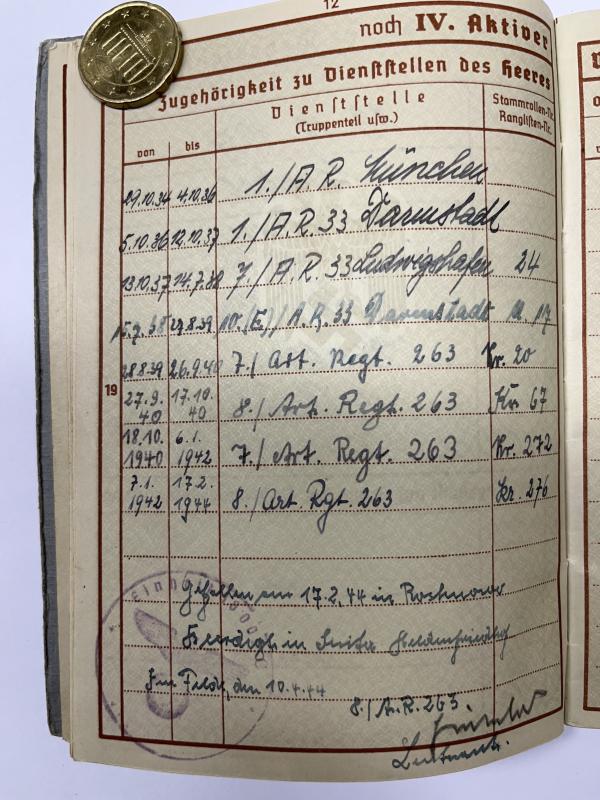 12
noch IV. Aktiver
Zugehörigkeit zu Dienststellen des Heeres
von bis Dienststelle (Truppenteil usw.) Stammrollen-Nr. Ranglisten-Nr.
29.10.34 4.10.36 1./A.R. München
5.10.36 12.10.37 1./A.R. 33 Darmstadt
13.10.37 14.7.38 7./A.R. 33 Ludwigshafen 24
15.7.38 27.8.39 10.(E)/A.R. 33 Darmstadt 17
28.8.39 26.9.40 7./Art. Regt. 263 Kr. 20
19
27.9. 40 17.10. 40 8./Art. Regt. 263 Kr. 67
18.10. 1940 6.1. 1942 7./Art. Regt. 263 Kr. 272
7.1. 1942 17.2. 1944 8./Art. Rgt. 263 Kr. 276
Gefallen am 17.2.44 in
Beerdigt in
Im Felde, den 10.4.44
8./A.R. 263.
Leutnant.